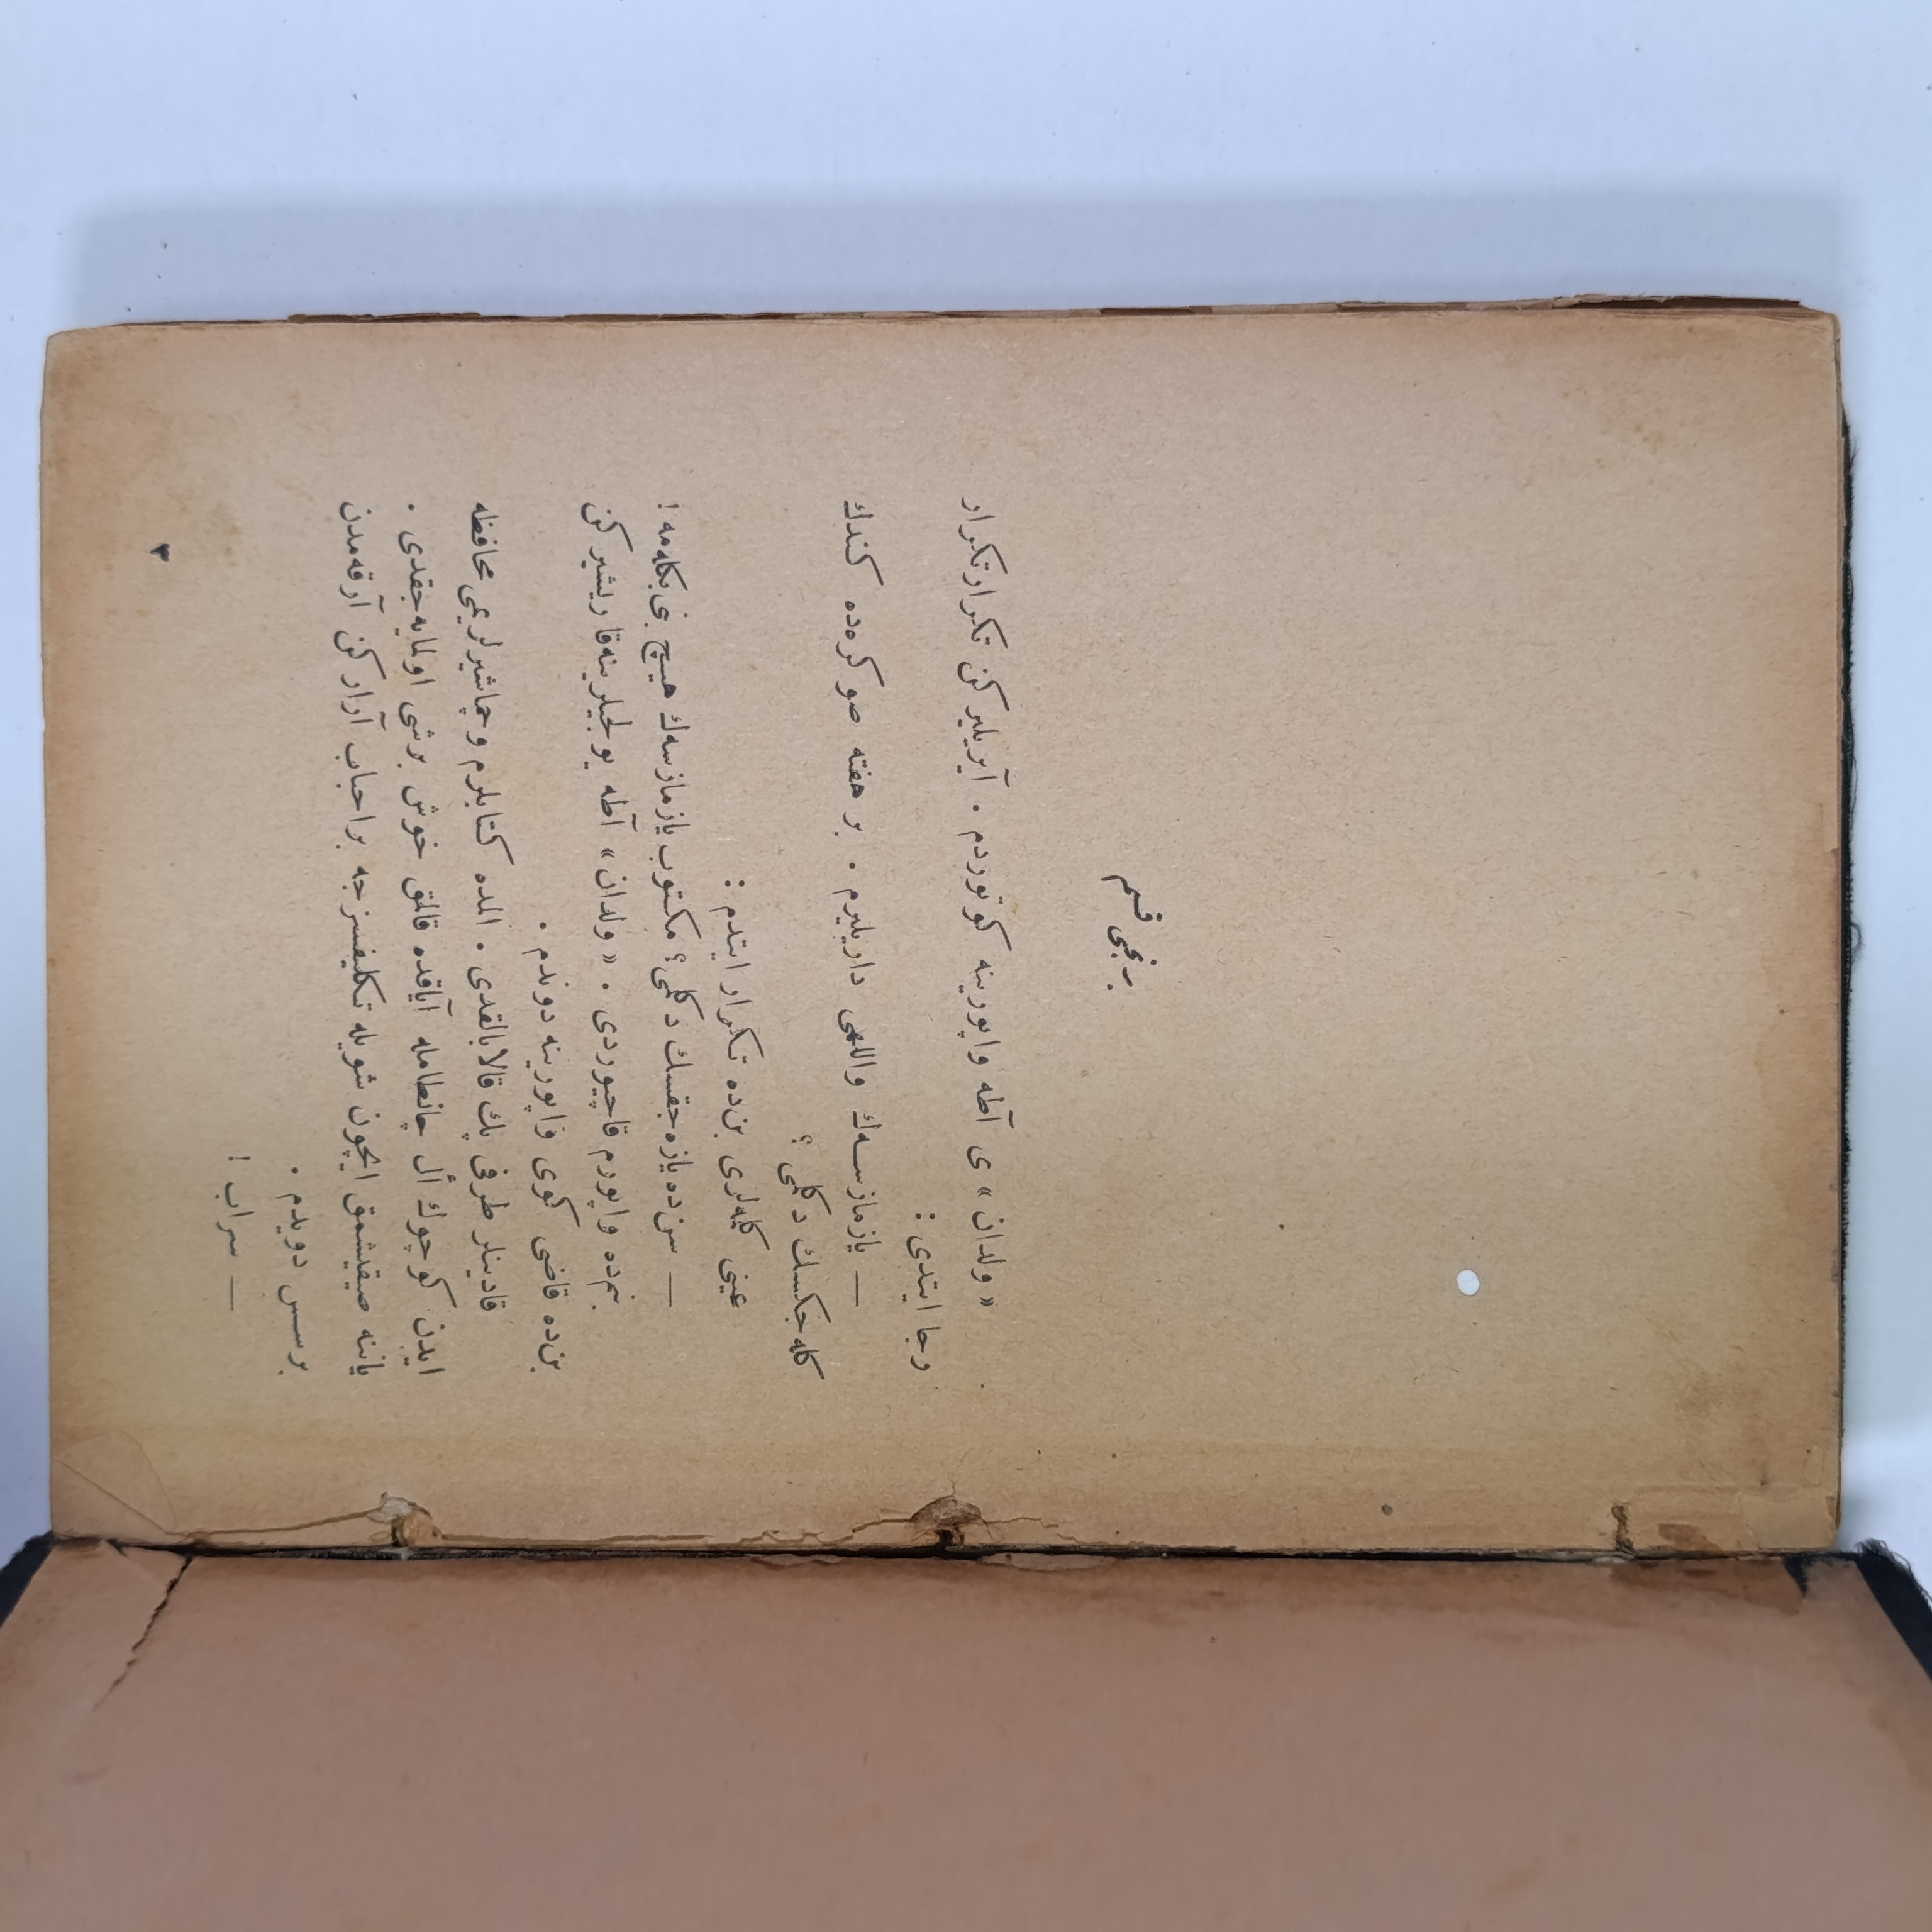 برنجی قسم
«ولدان» ی آطه واپورینه کوتوردم . آیریلیرکن تکرارتکرار
رجا ایتدی :
— یازمازسەك واللهی داریلیرم . بر هفته صوکرەده کندك
کله‌جکسك دکلی ؟
عینی کلیه‌لری بن‌ده تکرار ایتدم :
— سن ده یازه‌جقسك دکلی؟ مکتوب یازمازسه‌ك هیچ بنی بکله‌مه !
بنم‌ده واپورم قاچیوردی . «ولدان» آطه یولجیلرینه قاریشیرکن
بن‌ده قاضی کوی واپورینه دوندم .
قادینلر طرفی پك قالابالقدی . المده کتابلرم وچماشیرلریمی محافظه
ایدن کوچوك أل چانطامله آیاقده قالمق خوش برشی اولمایه‌جقدی .
یاننه صیقیشمق ایچون شویله تکلیفسزجه براحباب آرارکن آرقه‌مدن
برسس دویدم .
— سراب !
٣